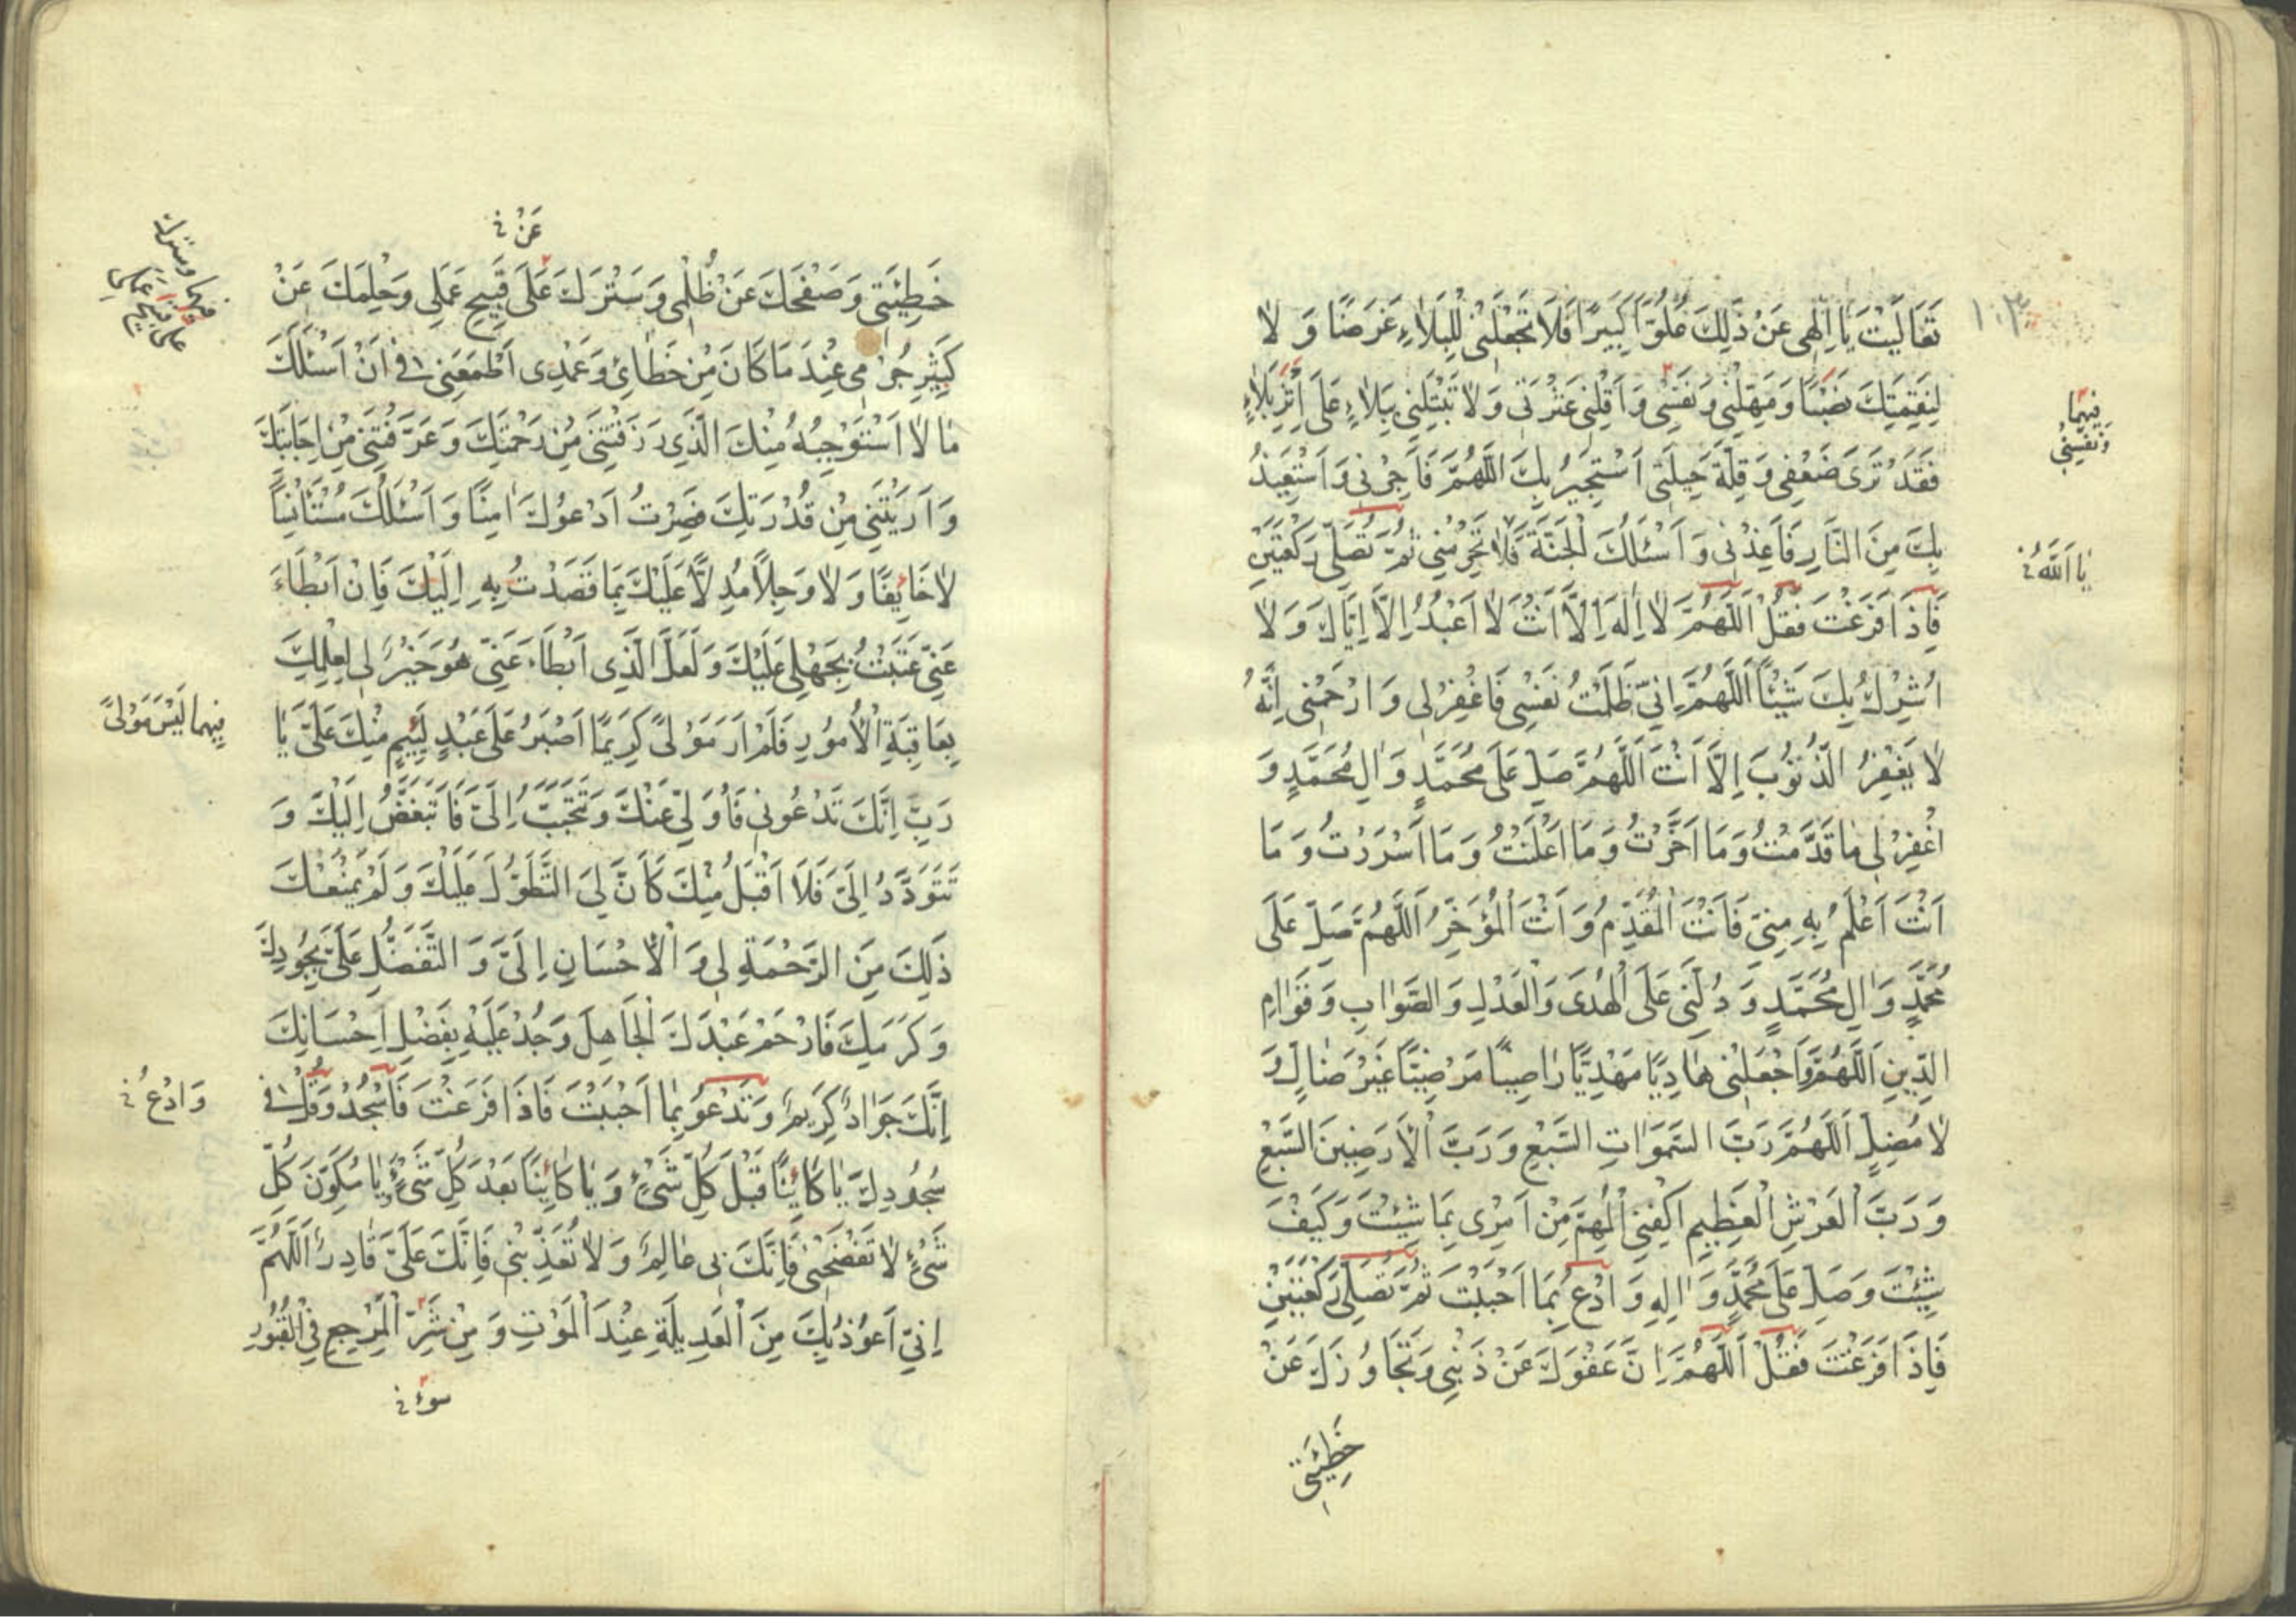 ١٠٣
تَعَالَيْتَ يَا اِلٰهِى عَنْ ذٰلِكَ عُلُوًّا كَبِيرًا فَلَا تَجْعَلْنِى لِلْبَلَاءِ غَرَضًا وَ لَا
لِنَقِمَتِكَ نَصْبًا وَمَهِّلْنِى وَنَفْسِى وَاَقِلْنِى عَثْرَتِى وَلَا تَبْتَلِيَنِى بِبَلَاءٍ عَلَى اَثَرِ بَلَاءٍ
فَقَدْ تَرَى ضَعْفِى وَقِلَّةَ حِيلَتِى اَسْتَجِيرُ بِكَ اَللّٰهُمَّ فَاَجِرْنِى وَاَسْتَعِيذُ
بِكَ مِنَ النَّارِ فَاَعِذْنِى وَ اَسْئَلُكَ الْجَنَّةَ فَلَا تَحْرِمْنِى ثُمَّ تُصَلِّى رَكْعَتَيْنِ
فَاِذَا فَرَغْتَ فَقُلْ اَللّٰهُمَّ لَا اِلٰهَ اِلَّا اَنْتَ لَا اَعْبُدُ اِلَّا اِيَّاكَ وَ لَا
اُشْرِكُ بِكَ شَيْئًا اَللّٰهُمَّ اِنِّى ظَلَمْتُ نَفْسِى فَاغْفِرْ لِى وَ ارْحَمْنِى اِنَّهُ
لَا يَغْفِرُ الذُّنُوبَ اِلَّا اَنْتَ اَللّٰهُمَّ صَلِّ عَلَى مُحَمَّدٍ وَ اٰلِ مُحَمَّدٍ وَ
اغْفِرْ لِى مَا قَدَّمْتُ وَمَا اَخَّرْتُ وَمَا اَعْلَنْتُ وَمَا اَسْرَرْتُ وَ مَا
اَنْتَ اَعْلَمُ بِهِ مِنِّى فَاَنْتَ الْمُقَدِّمُ وَ اَنْتَ الْمُؤَخِّرُ اَللّٰهُمَّ صَلِّ عَلَى
مُحَمَّدٍ وَ اٰلِ مُحَمَّدٍ وَ دُلَّنِى عَلَى الْهُدَى وَالْعَدْلِ وَ الصَّوَابِ وَ قَوَامِ
الدِّينِ اَللّٰهُمَّ وَاجْعَلْنِى هَادِيًا مَهْدِيًّا رَاضِيًا مَرْضِيًّا غَيْرَ ضَالٍّ وَ
لَا مُضِلٍّ اَللّٰهُمَّ رَبَّ السَّمَوَاتِ السَّبْعِ وَ رَبَّ الْاَرَضِينَ السَّبْعِ
وَ رَبَّ الْعَرْشِ الْعَظِيمِ اكْفِنِى الْمُهِمَّ مِنْ اَمْرِى بِمَا شِئْتَ وَكَيْفَ
شِئْتَ وَصَلِّ عَلَى مُحَمَّدٍ وَ اٰلِهِ وَ ادْعُ بِمَا اَحْبَبْتَ ثُمَّ تُصَلِّى رَكْعَتَيْنِ
فَاِذَا فَرَغْتَ فَقُلْ اَللّٰهُمَّ اِنَّ عَفْوَكَ عَنْ ذَنْبِى وَتَجَاوُزَكَ عَنْ
خَطِيئَتِى
فِيهِمَا
وَنَفِّسْنِى
يَا اَللّٰهُ
عَنْ
خَطِيئَتِى وَصَفْحَكَ عَنْ ظُلْمِى وَسَتْرَكَ عَلَى قَبِيحِ عَمَلِى وَحِلْمَكَ عَنْ
كَثِيرِ جُرْمِى عِنْدَ مَا كَانَ مِنْ خَطَائِى وَعَمْدِى اَطْمَعَنِى فِى اَنْ اَسْئَلَكَ
مَا لَا اَسْتَوْجِبُهُ مِنْكَ الَّذِى رَزَقْتَنِى مِنْ رَحْمَتِكَ وَعَرَّفْتَنِى مِنْ اِجَابَتِكَ
وَ اَرَيْتَنِى مِنْ قُدْرَتِكَ فَصِرْتُ اَدْعُوكَ اٰمِنًا وَ اَسْئَلُكَ مُسْتَانِسًا
لَا خَائِفًا وَ لَا وَجِلًا مُدِلًّا عَلَيْكَ بِمَا قَصَدْتُ بِهِ اِلَيْكَ فَاِنْ اَبْطَاءَ
عَنِّى عَتَبْتُ بِجَهْلِى عَلَيْكَ وَ لَعَلَّ الَّذِى اَبْطَاءَ عَنِّى هُوَ خَيْرٌ لِى لِعِلْمِكَ
بِعَاقِبَةِ الْاُمُورِ فَلَمْ اَرَ مَوْلًى كَرِيمًا اَصْبَرَ عَلَى عَبْدٍ لَئِيمٍ مِنْكَ عَلَىَّ يَا
رَبِّ اِنَّكَ تَدْعُونِى فَاُوَلِّى عَنْكَ وَتَتَحَبَّبُ اِلَىَّ فَاَتَبَغَّضُ اِلَيْكَ وَ
تَتَوَدَّدُ اِلَىَّ فَلَا اَقْبَلُ مِنْكَ كَاَنَّ لِىَ التَّطَوُّلَ عَلَيْكَ وَ لَمْ يَمْنَعْكَ
ذٰلِكَ مِنَ الرَّحْمَةِ لِى وَ الْاِحْسَانِ اِلَىَّ وَ التَّفَضُّلِ عَلَىَّ بِجُودِكَ
وَ كَرَمِكَ فَارْحَمْ عَبْدَكَ الْجَاهِلَ وَجُدْ عَلَيْهِ بِفَضْلِ اِحْسَانِكَ
اِنَّكَ جَوَادٌ كَرِيمٌ وَتَدْعُو بِمَا اَحْبَبْتَ فَاِذَا فَرَغْتَ فَاسْجُدْ وَقُلْ فِى
سُجُودِكَ يَا كَائِنًا قَبْلَ كُلِّ شَىْءٍ وَ يَا كَائِنًا بَعْدَ كُلِّ شَىْءٍ يَا مُكَوِّنَ كُلِّ
شَىْءٍ لَا تَفْضَحْنِى فَاِنَّكَ بِى عَالِمٌ وَ لَا تُعَذِّبْنِى فَاِنَّكَ عَلَىَّ قَادِرٌ اَللّٰهُمَّ
اِنِّى اَعُوذُ بِكَ مِنَ الْعَدِيلَةِ عِنْدَ الْمَوْتِ وَ مِنْ شَرِّ الْمَرْجِعِ فِى الْقُبُورِ
سوء
فِيهِمَا لَيْسَ مَوْلًى
وَ ادْعُ